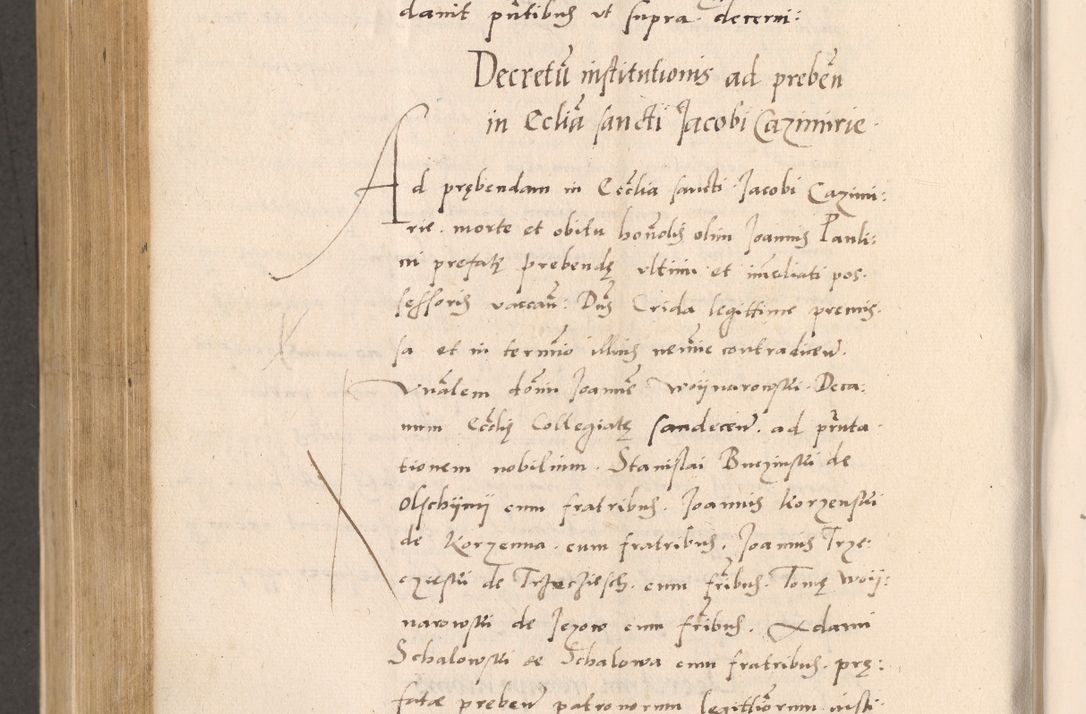 danit pñtibus ut supra decerni:
Decretũ institutionis ad prebeñ
in Ecliã sancti Jacobi Cazimirie.
Ad prębendam in Eccłia sancti Jacobi Cazimi:
rie. morte et obitu honorłis olim Joannis Pauli:
ni prefatę prebendę ultimi et immediati pos.
sessoris vaccañ: Dñs Crida legittime premis.
sa et in termino illius nemine contradiceñ.
Vñalem domĩ Joannẽ Woijnarowski Deca:
num Eccłię Collegiatę Sandeceñ. ad pñta.
tionem nobilium. Stanislai Buczinski de
Olschijnij cum fratribus. Joannis Korzenski
de Korzenna. cum fratribus. Joannis Trze:
czieski de Trzecziesch. cum fribus. Tomę Woij:
narowski de Jezow cum fribus. Adami
Schalowski de Schalowa cum fratribus. prę:
fatae prebeñ patronorum legittiorum insti